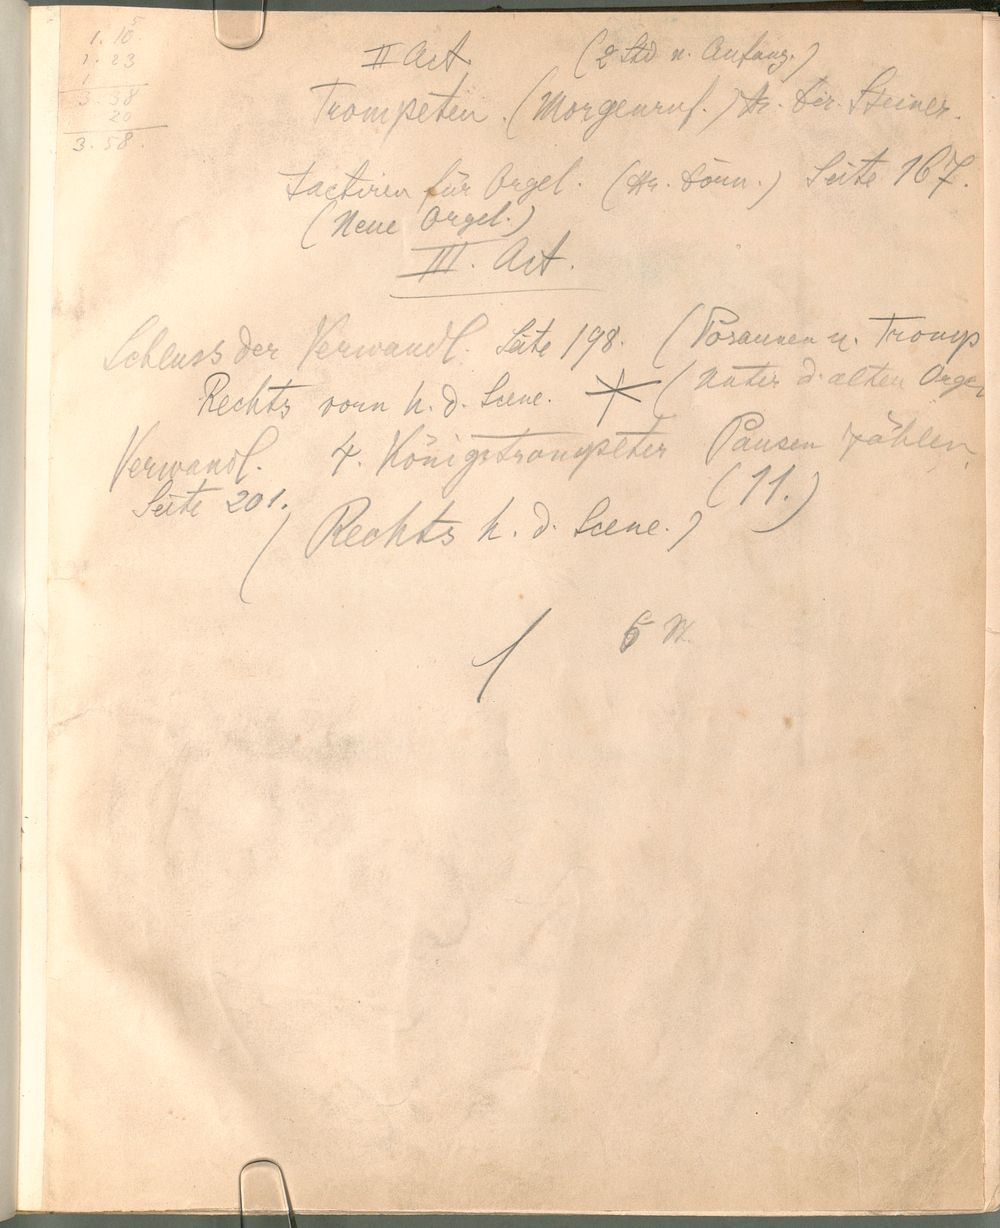 5
1. 10
1. 23
1
3. 38
20
3. 58.
II Act (2 Std n. Anfang.)
Trompeten. (Morgenruf.) Hr. Dir. Steiner.
Tactiren für Orgel. (Hr. Dönn.) Seite 167.
(Neue Orgel.)
III. Act.
Schluss der Verwandl. Seite 198. (Posaunen u. Tromp
Rechts vorn h. d. Scene. (Unter d. alten Orgel
Verwandl. 4. Königstrompeter Pausen zählen.
Seite 201. (11.)
(Rechts h. d. Scene.)
5